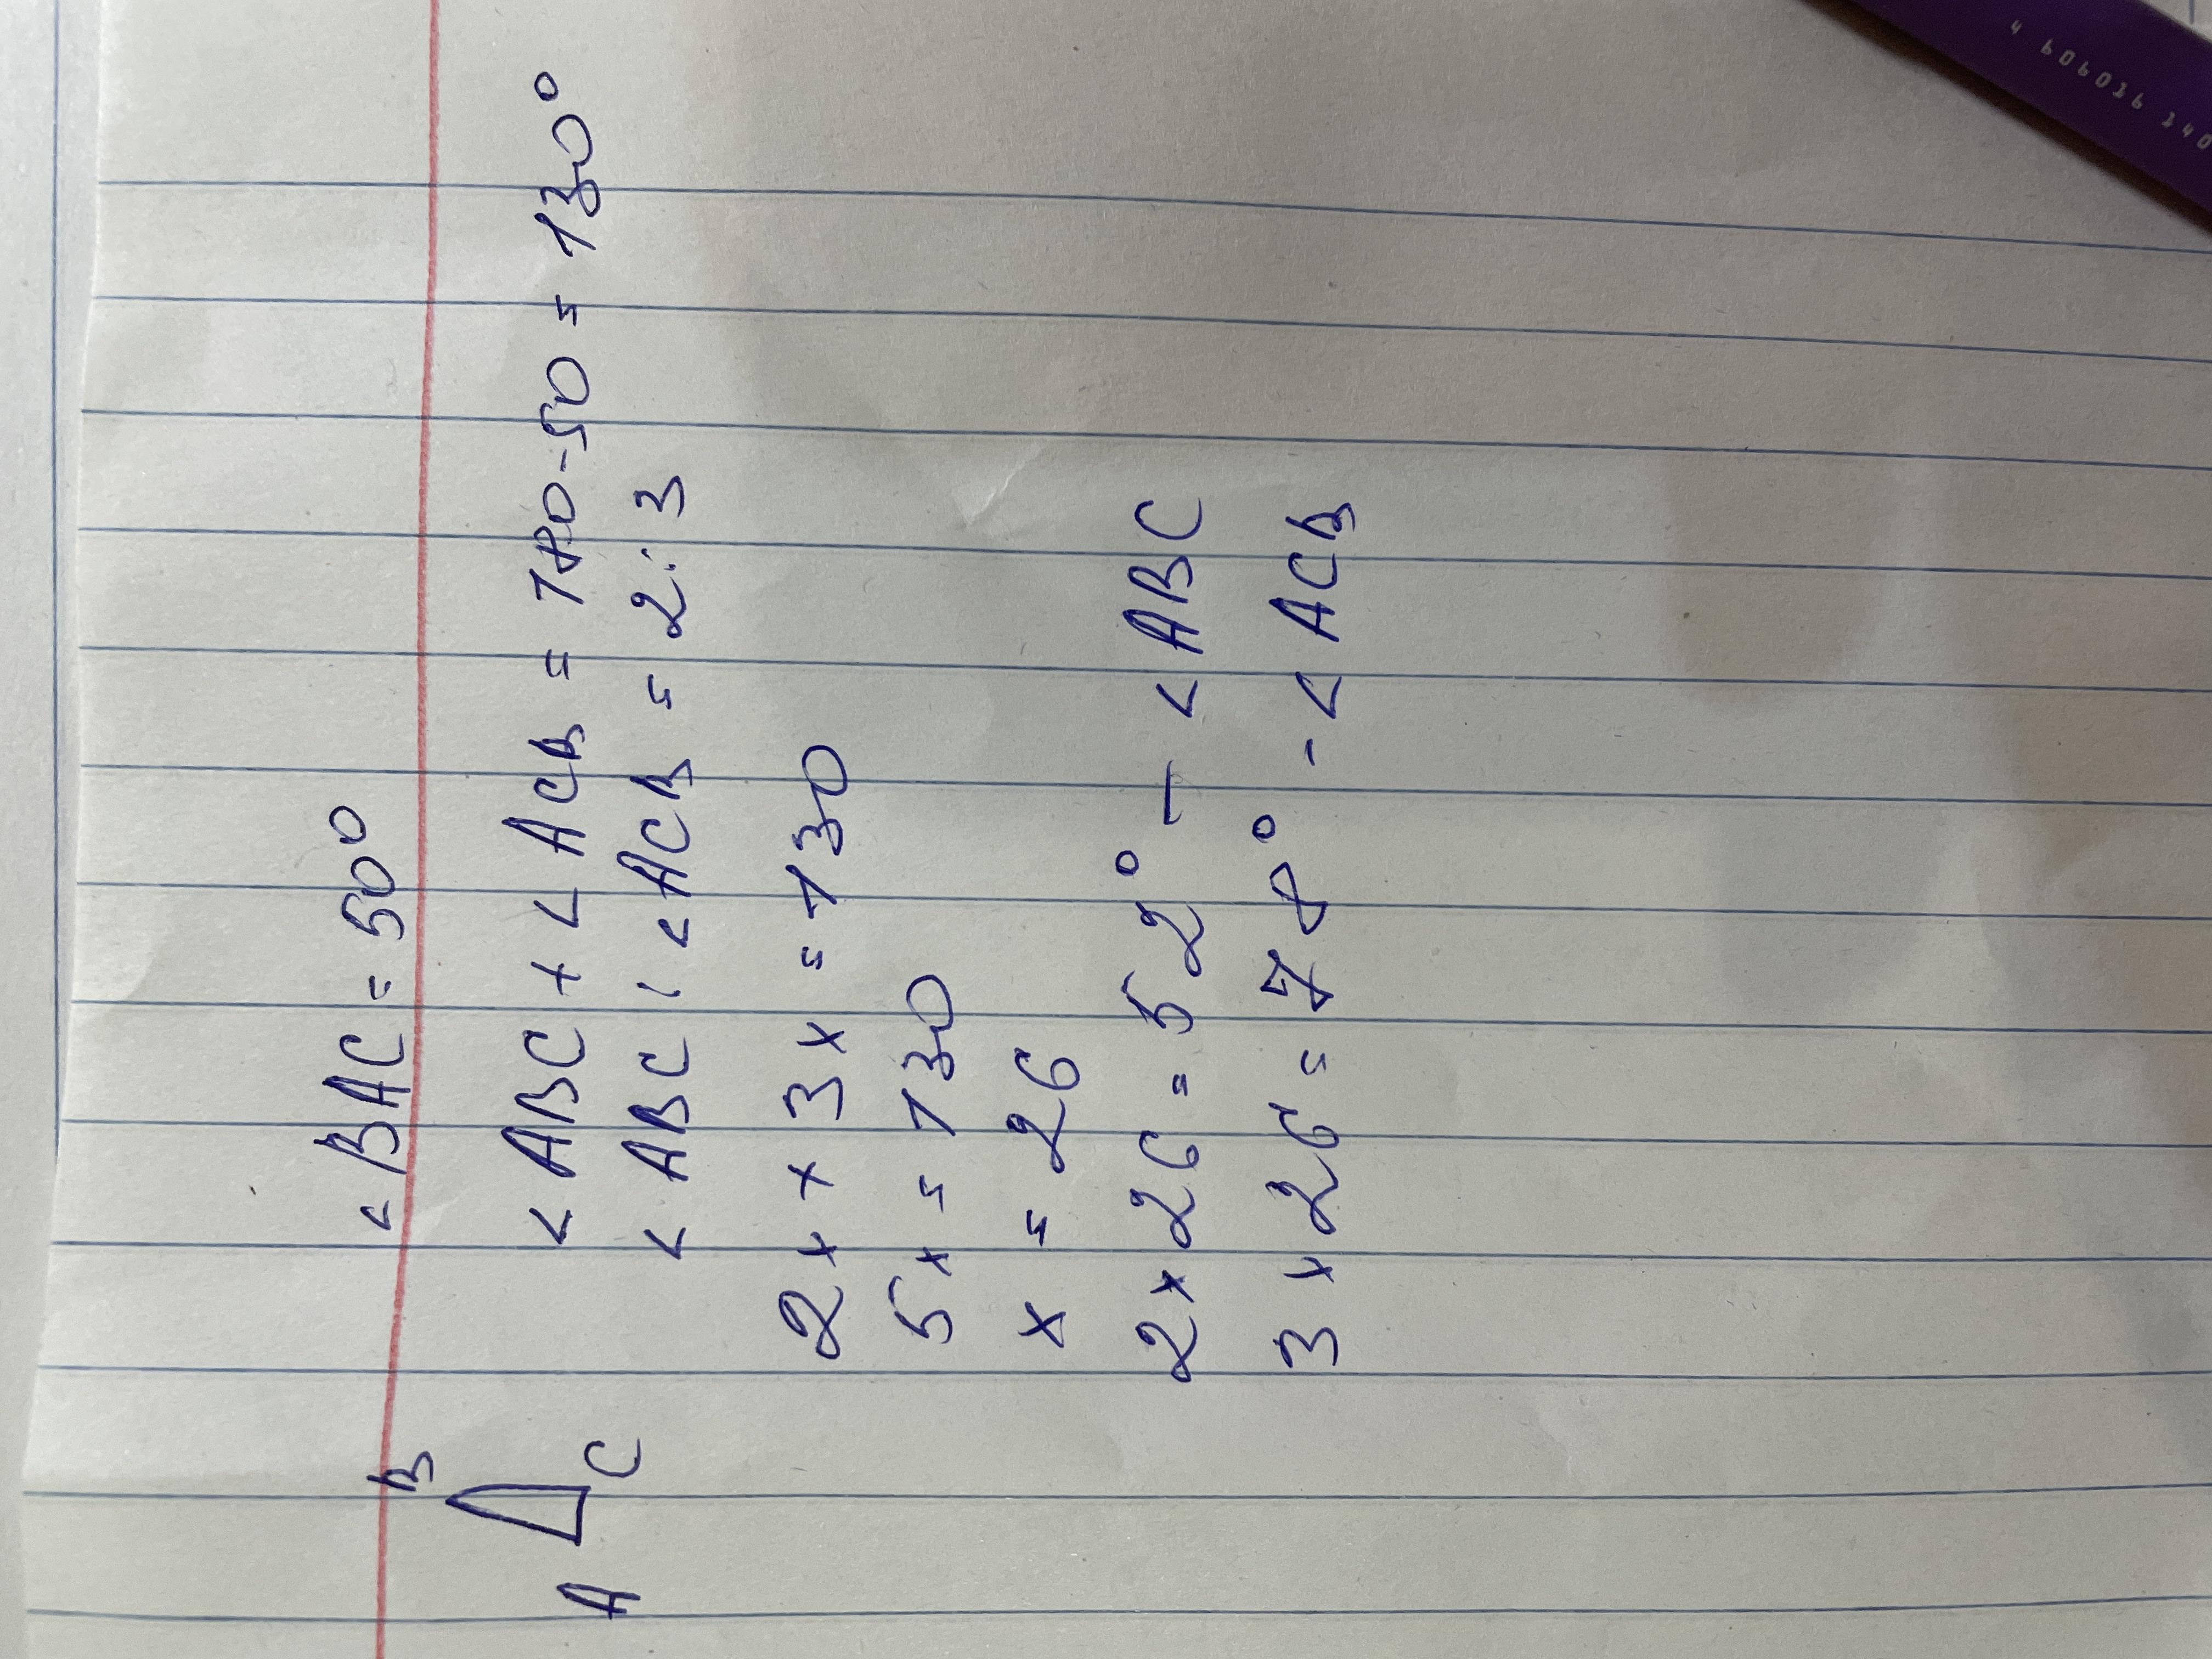 < BAC = 50°
B
A
C
< ABC + < ACB = 180-50 = 130°
< ABC : < ACB = 2:3
2x + 3x = 130
5x = 130
x = 26
2 x 26 = 52° - < ABC
3 x 26 = 78° - < ACB
4 606016 140